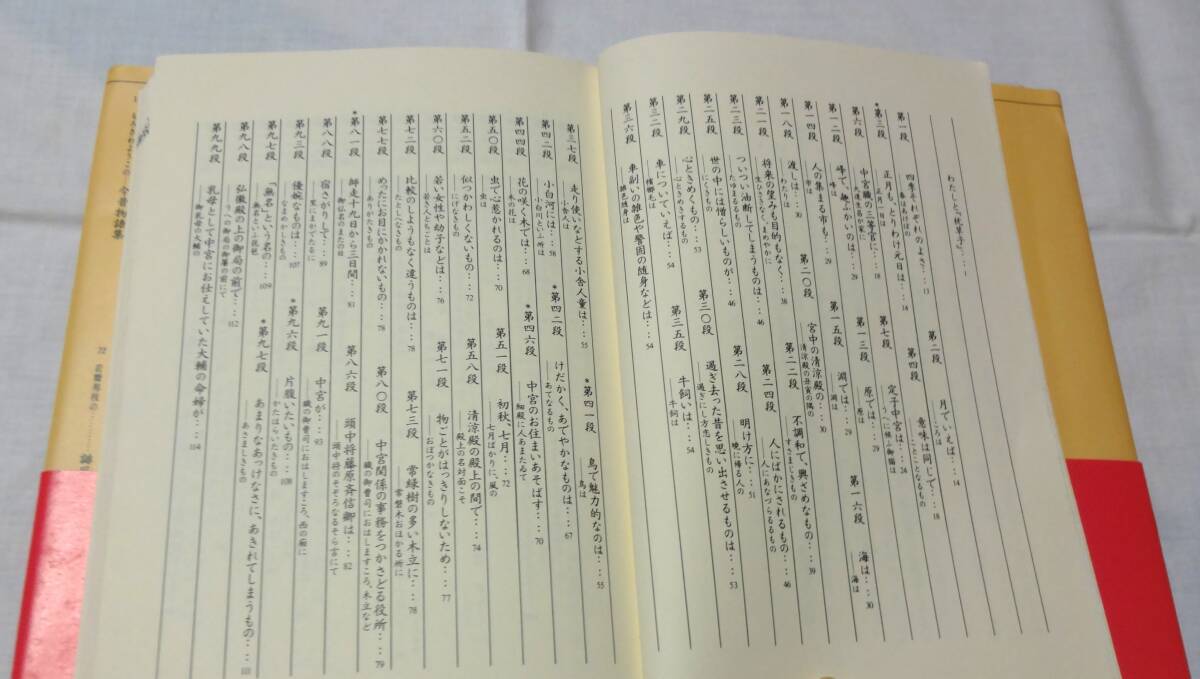 わたしと『枕草子』‥‥1
第一段 四季それぞれのよさ‥‥13
春はあけぼの
第二段 月でいえば‥‥14
ころは
*第三段 正月も、とりわけ元日は‥‥14
正月一日は
第四段 意味は同じで‥‥18
ことことなるもの
第六段 中宮職の三等官に‥‥18
大進生昌が家に
第七段 定子中宮は‥‥24
うへに候ふ御猫は
第一二段 峰で、趣ふかいのは‥‥29
峰は
第一三段 原では‥‥29
原は
第一四段 人の集まる市も‥‥29
市は
第一五段 淵では‥‥29
淵は
第一六段 海は‥‥30
海は
第一八段 渡しは‥‥30
わたりは
第二〇段 宮中の清涼殿の‥‥30
清涼殿の丑寅の隅の
第二一段 将来の望みも目的もなく‥‥38
生ひさきなく、まめやかに
第二二段 不調和で、興ざめなもの‥‥39
すさまじきもの
第二三段 ついつい油断してしまうものは‥‥46
たゆまるるもの
第二四段 人にばかにされるもの‥‥46
人にあなづらるるもの
第二五段 世の中には憎らしいものが‥‥46
にくきもの
第二八段 明け方に‥‥51
暁に帰る人の
第二九段 心ときめくもの‥‥53
心ときめきするもの
第三〇段 過ぎ去った昔を思い出させるものは‥‥53
過ぎにし方恋しきもの
第三二段 車についていえば‥‥54
檳榔毛は
第三五段 牛飼いは‥‥54
牛飼は
第三六段 車副いの雑色や警固の随身などは‥‥54
雑色随身は
第三七段 走り使いなどする小舎人童は‥‥55
小舎人は
*第四一段 鳥で魅力的なのは‥‥55
鳥は
第四二段 小白河には‥‥58
小白川といふ所は
*第四二段 けだかく、あてやかなものは‥‥67
あてなるもの
第四四段 花の咲く木では‥‥68
木の花は
*第四六段 中宮のお住まいあそばす‥‥70
細殿に人あまたゐて
第五〇段 虫で心惹かれるのは‥‥70
虫は
第五一段 初秋、七月‥‥72
七月ばかりに、風の
第五二段 似つかわしくないもの‥‥72
にげなきもの
第五八段 清涼殿の殿上の間で‥‥74
殿上の名対面こそ
第六〇段 若い女性や幼子などは‥‥76
若き人とちごとは
第七一段 物ごとがはっきりしないため‥‥77
おぼつかなきもの
第七二段 比較のしようもなく違うものは‥‥78
たとしへなきもの
第七三段 常緑樹の多い木立に‥‥78
常磐木おほかる所に
第七七段 めったにお目にかかれないもの‥‥78
ありがたきもの
第八〇段 中宮関係の事務をつかさどる役所‥‥79
職の御曹司におはしますころ、木立など
*第八一段 師走十九日から三日間‥‥81
御仏名のまたの日
第八六段 頭中将藤原斉信卿は‥‥82
頭中将のそぞろなるそら言にて
第八八段 宿さがりして‥‥89
里にまかでたるに
第九一段 中宮が‥‥93
職の御曹司におはしますころ、西の廂に
第九三段 優婉なものは‥‥107
なまめかしきもの
*第九六段 片腹いたいもの‥‥108
かたはらいたきもの
第九七段 「無名」という名の‥‥109
無名といふ琵琶
*第九七段 あまりなあっけなさに、あきれてしまうもの‥‥111
あさましきもの
第九八段 弘徽殿の上の御局の前で‥‥112
うへの御局の御簾の前にて
第九九段 乳母として中宮にお仕えしていた大輔の命婦が‥‥114
御乳母の大輔の
今昔物語集
22